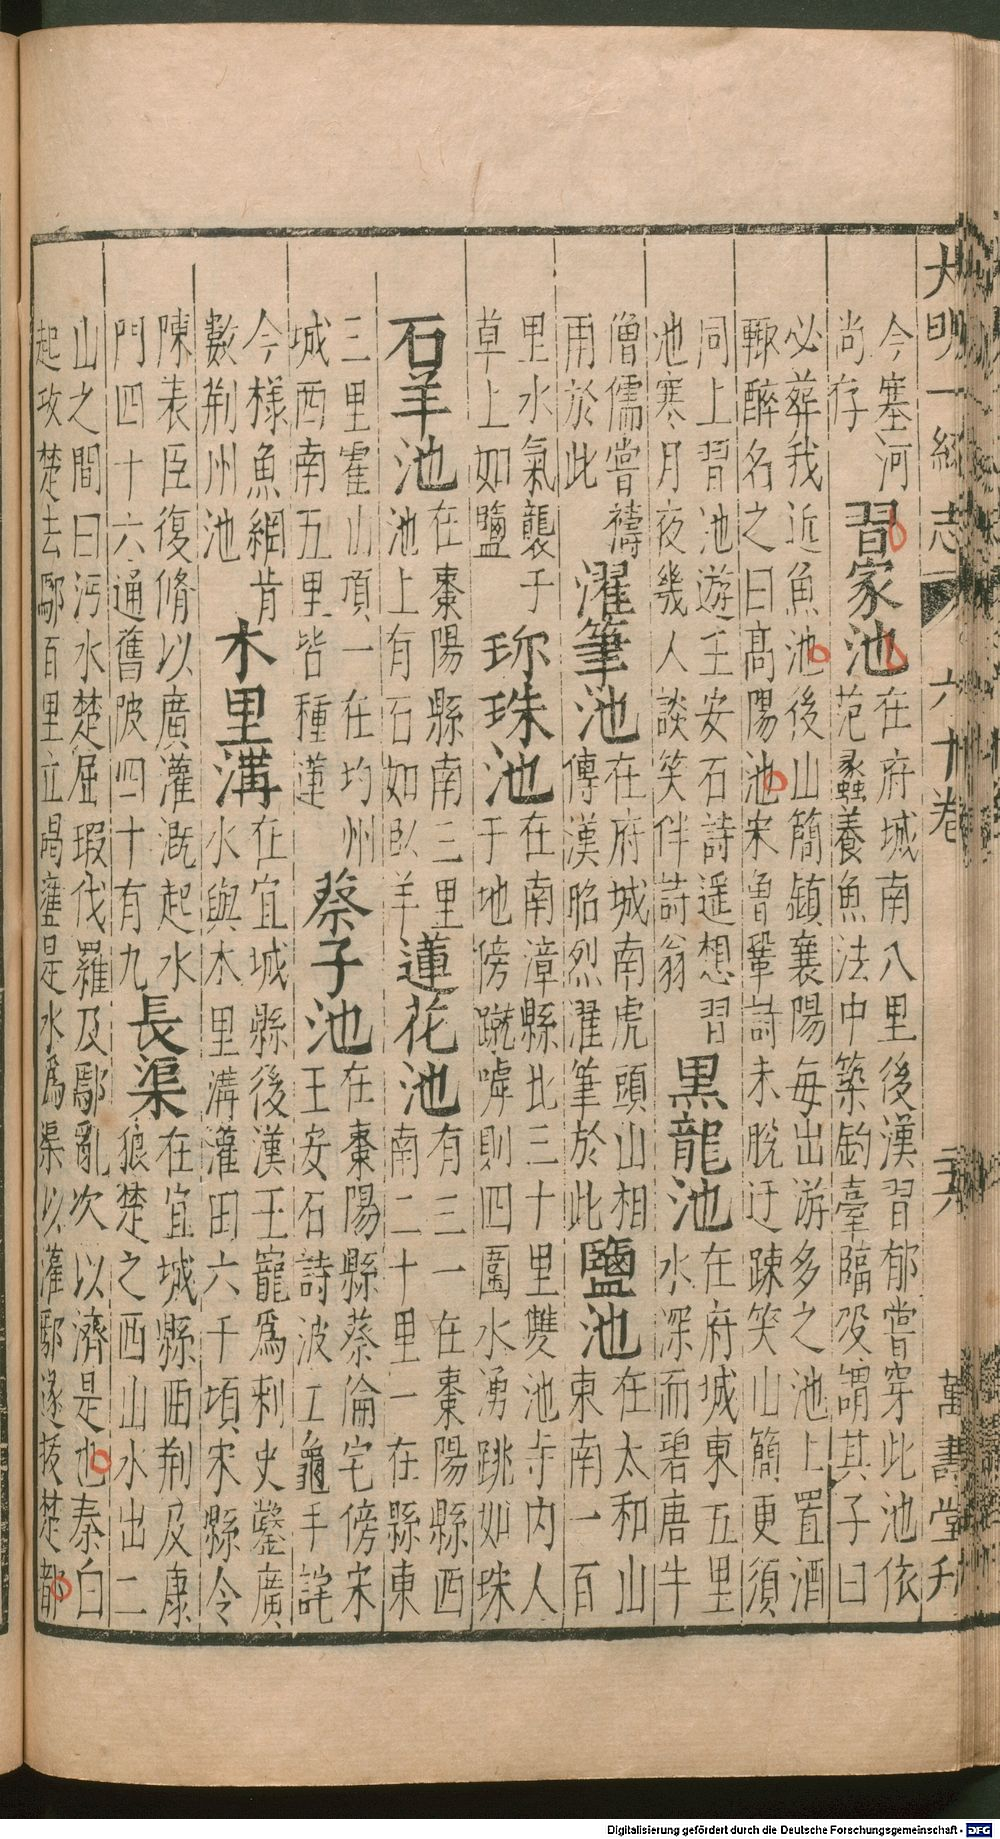 大明一統志 六十卷 萬壽堂刊
今塞河
尚存
習家池
在府城南八里後漢習郁嘗穿此池依
范蠡養魚法中築釣臺臨歿謂其子曰
必葬我近魚池後山簡鎮襄陽每出游多之池上置酒
輙醉名之曰高陽池宋曾鞏詩未脫迂踈笑山簡更須
同上習池遊王安石詩遥想習
池寒月夜幾人談笑伴詩翁
黑龍池
在府城東五里
水深而碧唐牛
僧儒嘗禱
雨於此
濯筆池
在府城南虎頭山相
傳漢昭烈濯筆於此
鹽池
在太和山
東南一百
里水氣襲子
草上如鹽
珎珠池
在南漳縣北三十里雙池寺内人
于地傍蹴嘑則四圍水湧跳如珠
石羊池
在棗陽縣南三里
池上有石如臥羊
蓮花池
有三一在棗陽縣西
南二十里一在縣東
三里霍山頂一在均州
城西南五里皆種蓮
蔡子池
在棗陽縣蔡倫宅傍宋
王安石詩波工龜手詫
今樣魚網肯
數荆州池
木里溝
在宜城縣後漢王寵爲刺史鑿廣
水與木里溝灌田六千頃宋縣令
陳表臣復脩以廣灌溉起水
門四十六通舊陂四十有九
長渠
在宜城縣西荆及康
狼楚之西山水出二
山之間曰沔水楚屈瑕伐羅及鄢亂次以濟是也秦白
起攻楚去鄢百里立堨壅是水爲渠以灌鄢遂拔楚都
Digitalisierung gefördert durch die Deutsche Forschungsgemeinschaft - DFG